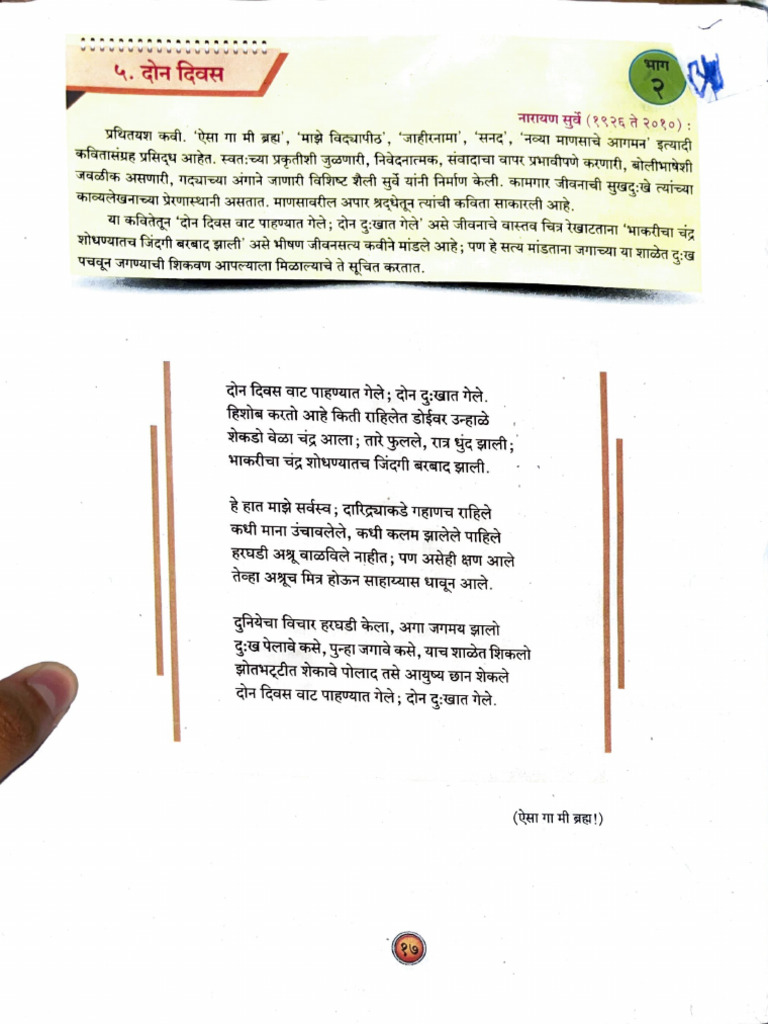 ५. दोन दिवस
भाग
२
नारायण सुर्वे (१९२६ ते २०१०) :
प्रथितयश कवी. ‘ऐसा गा मी ब्रह्म’, ‘माझे विद्यापीठ’, ‘जाहीरनामा’, ‘सनद’, ‘नव्या माणसाचे आगमन’ इत्यादी
कवितासंग्रह प्रसिद्ध आहेत. स्वतःच्या प्रकृतीशी जुळणारी, निवेदनात्मक, संवादाचा वापर प्रभावीपणे करणारी, बोलीभाषेशी
जवळीक असणारी, गद्याच्या अंगाने जाणारी विशिष्ट शैली सुर्वे यांनी निर्माण केली. कामगार जीवनाची सुखदुःखे त्यांच्या
काव्यलेखनाच्या प्रेरणास्थानी असतात. माणसावरील अपार श्रद्धेतून त्यांची कविता साकारली आहे.
या कवितेतून ‘दोन दिवस वाट पाहण्यात गेले; दोन दुःखात गेले’ असे जीवनाचे वास्तव चित्र रेखाटताना ‘भाकरीचा चंद्र
शोधण्यातच जिंदगी बरबाद झाली’ असे भीषण जीवनसत्य कवीने मांडले आहे; पण हे सत्य मांडताना जगाच्या या शाळेत दुःख
पचवून जगण्याची शिकवण आपल्याला मिळाल्याचे ते सूचित करतात.
दोन दिवस वाट पाहण्यात गेले; दोन दुःखात गेले.
हिशोब करतो आहे किती राहिलेत डोईवर उन्हाळे
शेकडो वेळा चंद्र आला; तारे फुलले, रात्र धुंद झाली;
भाकरीचा चंद्र शोधण्यातच जिंदगी बरबाद झाली.
हे हात माझे सर्वस्व; दारिद्र्याकडे गहाणच राहिले
कधी माना उंचावलेले, कधी कलम झालेले पाहिले
हरघडी अश्रू वाळविले नाहीत; पण असेही क्षण आले
तेव्हा अश्रूच मित्र होऊन साहाय्यास धावून आले.
दुनियेचा विचार हरघडी केला, अगा जगमय झालो
दुःख पेलावे कसे, पुन्हा जगावे कसे, याच शाळेत शिकलो
झोतभट्टीत शेकावे पोलाद तसे आयुष्य छान शेकले
दोन दिवस वाट पाहण्यात गेले; दोन दुःखात गेले.
(ऐसा गा मी ब्रह्म!)
१७